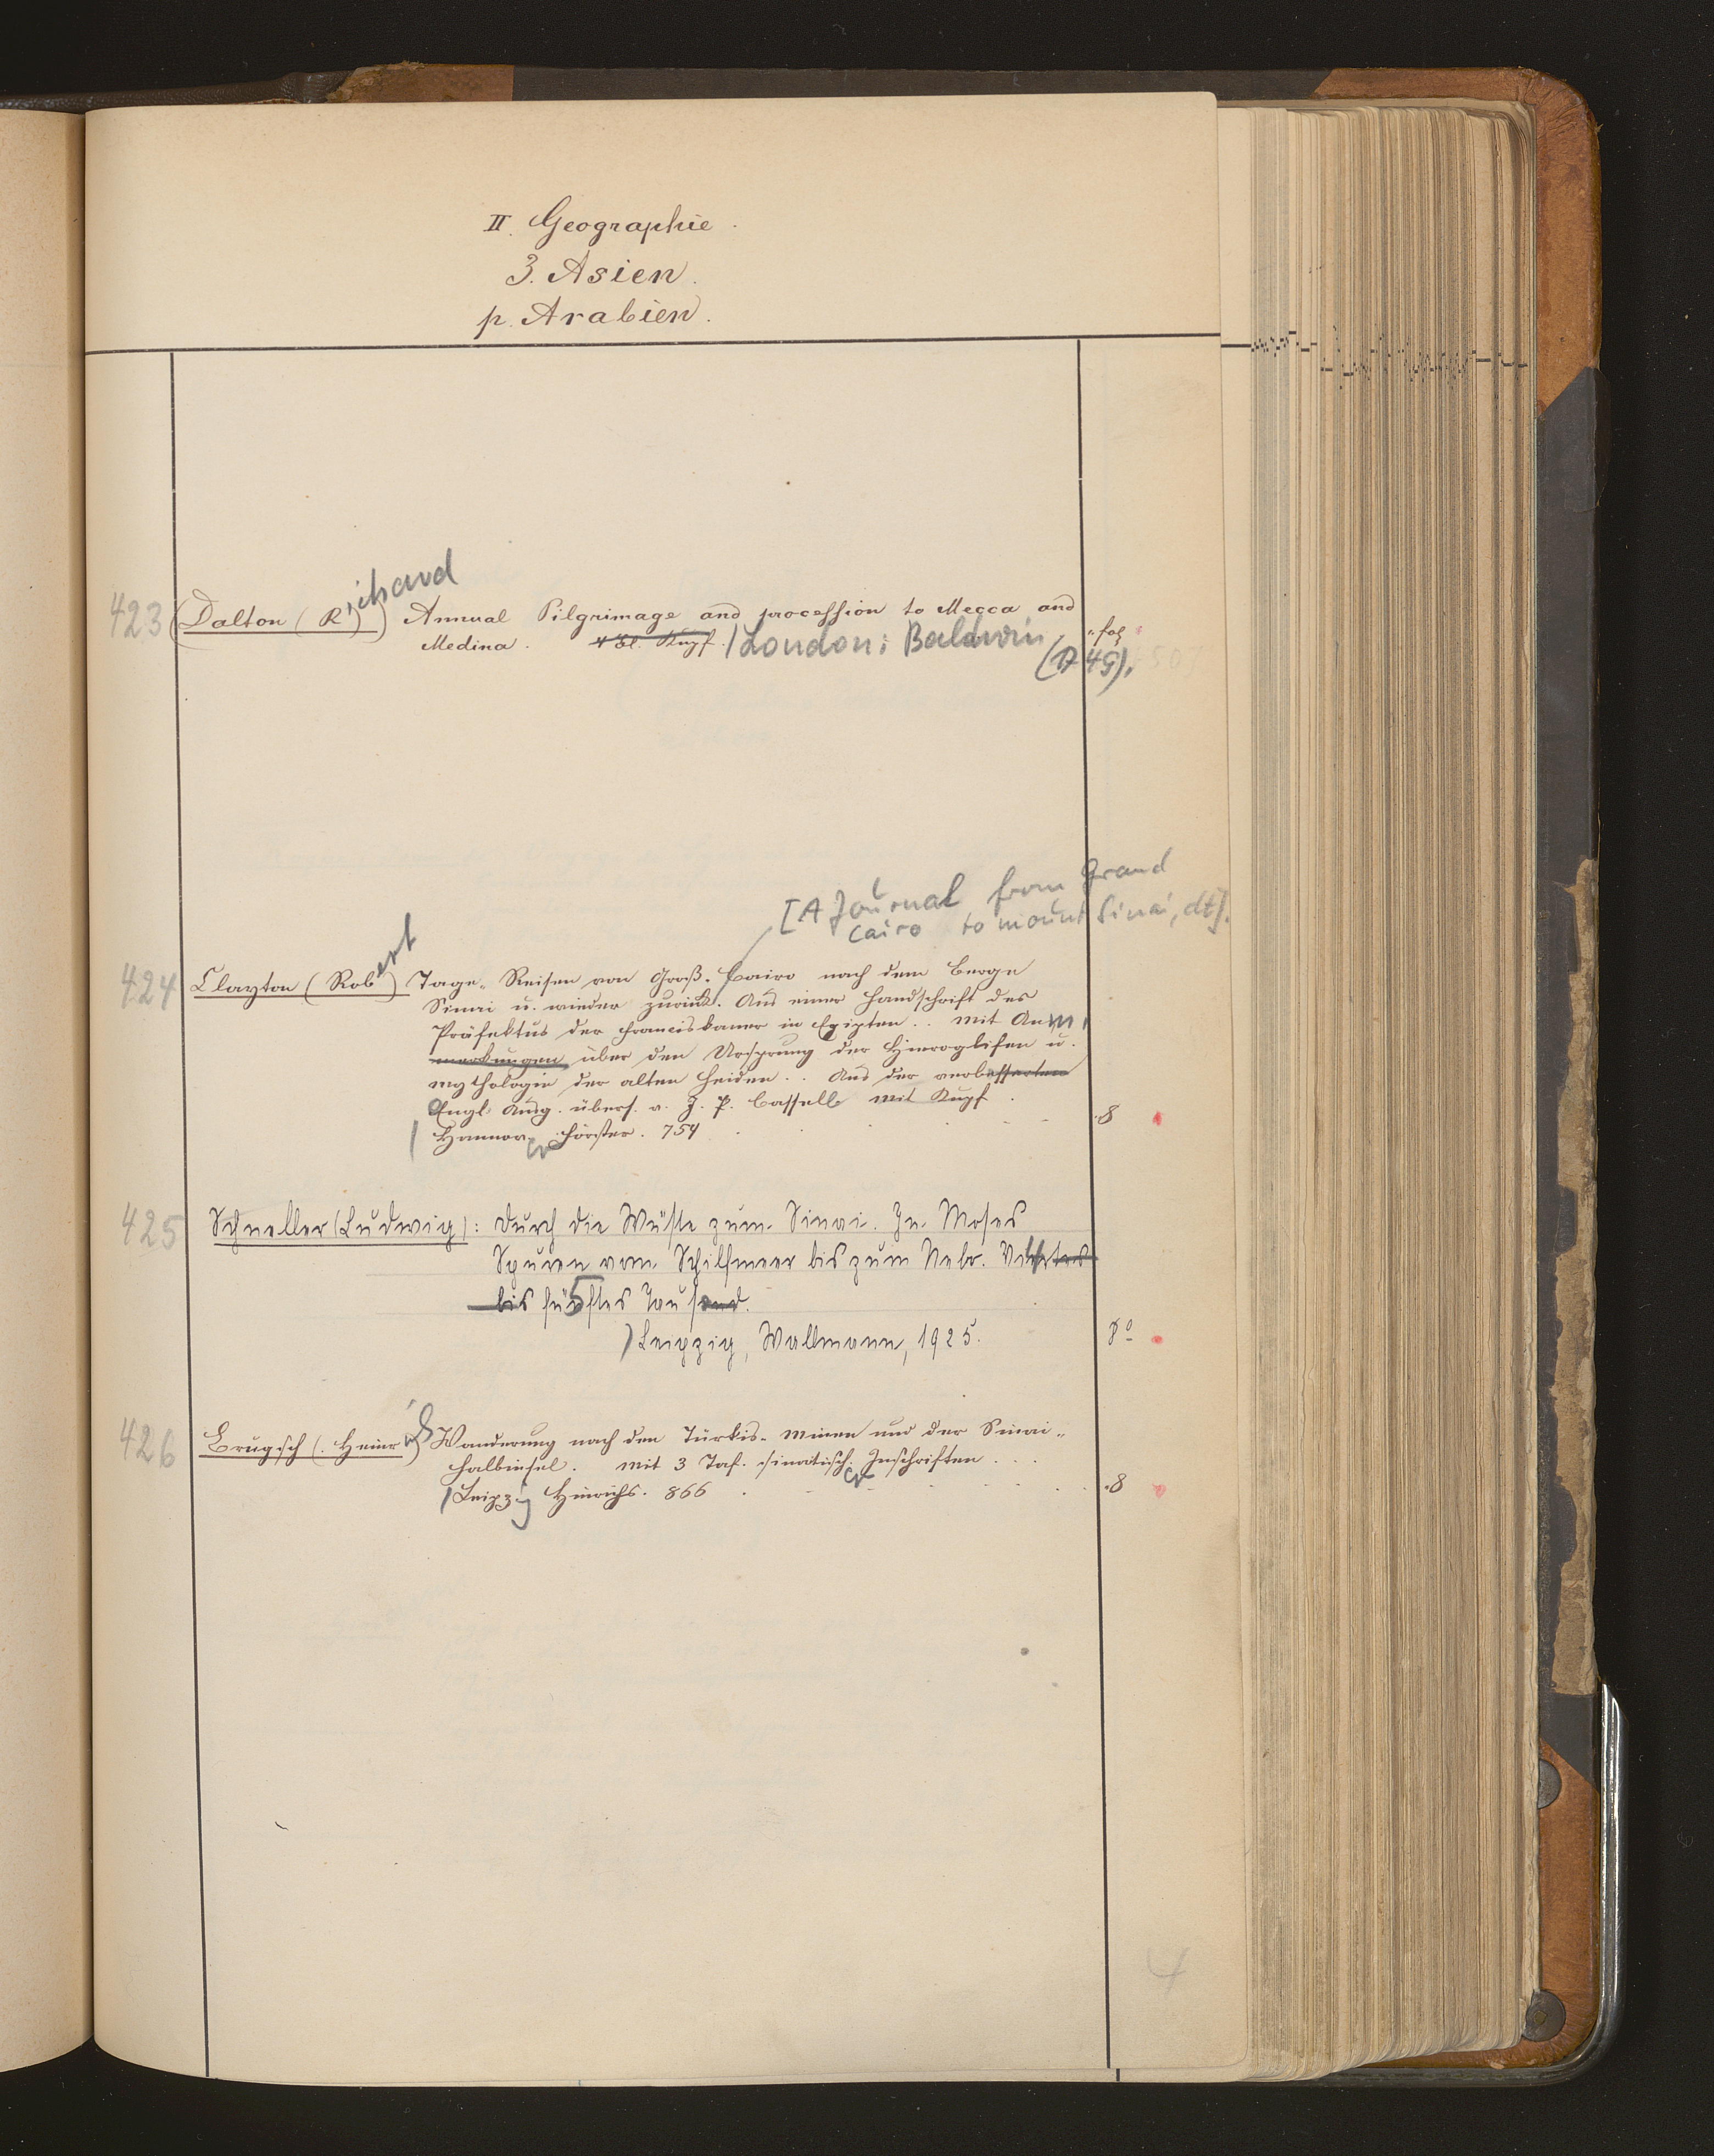 II. Geographie.
3. Asien.
p. Arabien.
423 (Dalton (Richard) Annual Pilgrimage and procession to Mecca and
Medina. 4 Bl. Kupf. / London: Baldwin fol
(1749).
[A Journal from Grand
Cairo to mount Sinai, dt].
424 Clayton (Robert) Tage-Reisen von Groß-Cairo nach dem Berge
Sinai u. wieder zurück. Aus einer Handschrift des
Präfektus der Franciskaner in Egipten.. mit Anm.
merkungen über den Ursprung der Hieroglifen u.
mythologie der alten Heiden.. Aus der verbesserten
Engl. Ausg. übers. v. J. P. Cassell mit Kupf.
/ Hannover Förster. 754 8
425 Schneller (Ludwig): Durch die Wüste zum Sinai. In Moses
Spuren vom Schilfmeer bis zum Nebo.
bis fünftes Tausend. 5
/ Leipzig, Wallmann, 1925. 8º
426 Brugsch (Heinrich) Wanderung nach den Türkis-Minen und der Sinai-
Halbinsel. mit 3 Taf. sinaitisch. Inschriften ...
/ Leipzig Hinrichs. 866 8
4